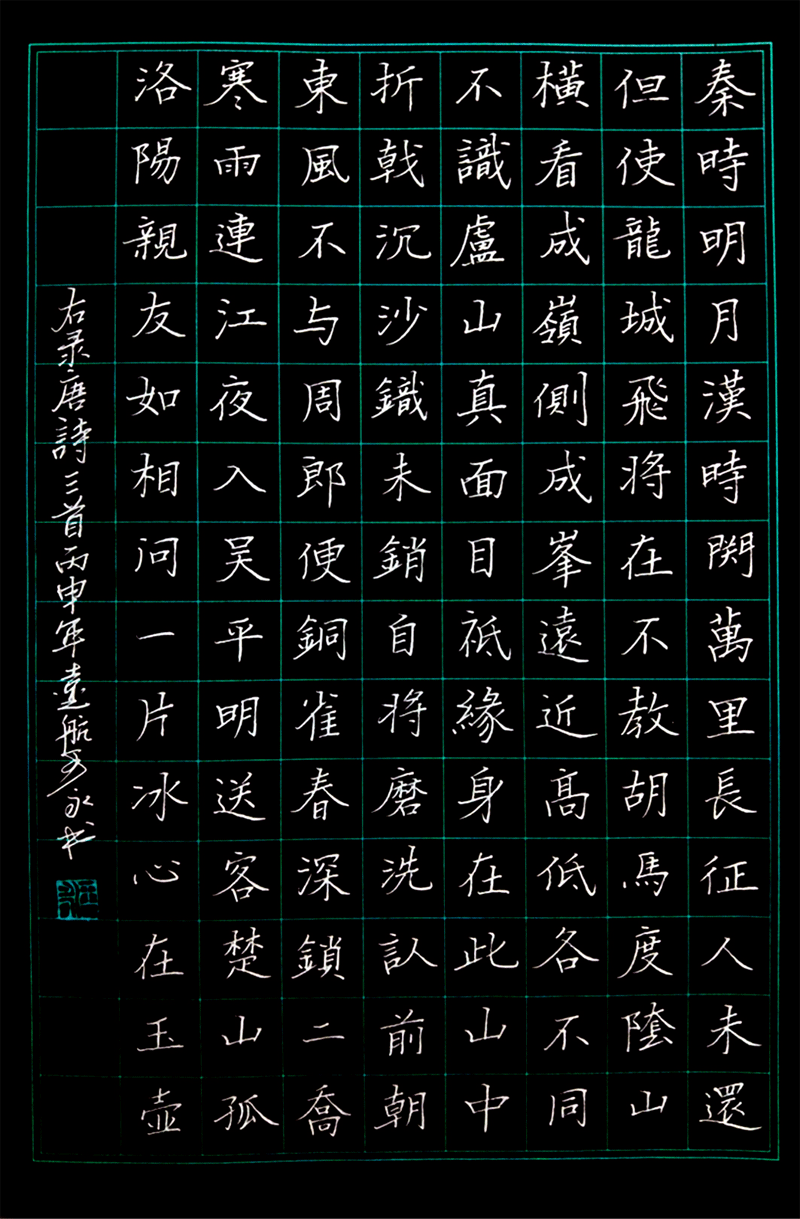 秦時明月漢時関萬里長征人未還
但使龍城飛将在不教胡馬度隂山
橫看成嶺側成峯遠近高低各不同
不識盧山真面目祇緣身在此山中
折戟沉沙鐵未銷自将磨洗認前朝
東風不与周郎便銅雀春深鎖二喬
寒雨連江夜入吴平明送客楚山孤
洛陽親友如相问一片冰心在玉壺
右录唐詩三首丙申年永书